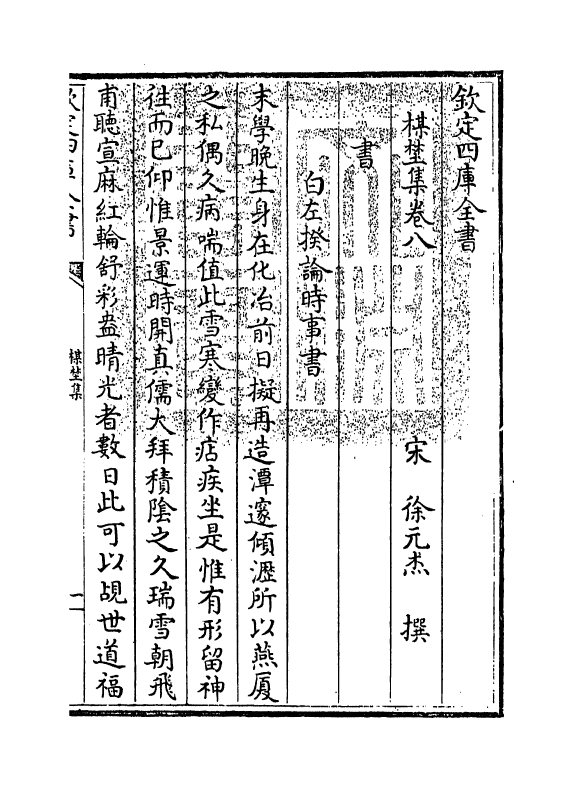 欽定四庫全書
楳埜集卷八
宋 徐元杰 撰
書
白左揆論時事書
末學晚生身在化冶前日擬再造潭邃傾瀝所以燕厦
之私偶久病喘值此雪寒變作痁疾坐是惟有形留神
往而已仰惟景運時開真儒大拜積陰之久瑞雪朝飛
甫聽宣麻紅輪舒彩盎晴光者數日此可以覘世道福
欽定四庫全書
楳埜集
一